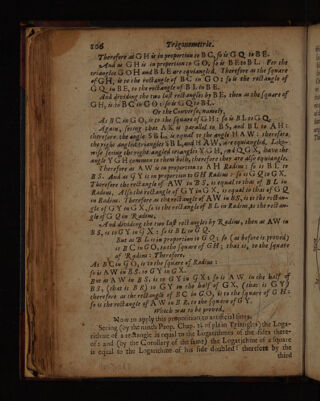 106 Trigonometrie.
Therefore as GH is in proportion to BC, so is GQ to BE.
And as GH is in proportion to GO, so is BE to BL. For the
triangles GOH and BLE are equiangled. Therefore as the square
of GH, is to the rectangle of BC in GO; so is the rectangle of
GQ in BE, to the rectangle of BL in BE.
And dividing the two last rectangles by BE, then as the square of
GH, is to BC in GO: so is GQ to BL.
Or the Converse, namely,
As BC in GO, is to the square of GH: so is BL to GQ.
Again, seeing that AX is parallel to BS, and BL to AH:
therefore the angle SBL is equal to the angle HAW: therefore
the right angled triangles SBL, and HAW, are equiangled. Like-
wise seeing the right angled triangles YGH, and QGX, have the
angle YGH common to them both, therefore they are also equiangle.
Therefore as AW is in proportion to AH Radius: so is BL to
BS. And as GY is in proportion to GH Radius: so is GQ to GX.
Therefore the rectangle of AW in BS, is equal to that of BL in
Radius. Also the rectangle of GY in GX, is equal to that of GQ
in Radius. Therefore as the rectangle of AW in BS, is to the rectan-
gle of GY in GX, so is the rectangle of BL in Radius, to the rectan-
gle of GQ in Radius.
And dividing the two last rectangles by Radius, then as AW in
BS, is to GY in GX: so is BL to GQ.
But as BL is in proportion to GQ: so (as before is proved)
is BC in GO, to the square of GH; that is, to the square
of Radius: Therefore,
As BC in GO, is to the square of Radius:
so is AW in BS, to GY in GX.
But as AW in BS, is to GY in GX: so is AW in the half of
BS, (that is BR) to GY in the half of GX, (that is GY)
therefore as the rectangle of BC in GO, is to the square of GH:
so is the rectangle of AW in BR, to the square of GY.
Which was to be proved.
Now to apply this proposition to artificial lines.
Seeing (by the ninth Prop. Chap. 2. of plain Triangles) the Loga-
rithme of a rectangle is equal to the Logarithmes of the sides there-
of: and (by the Corollary of the same) the Logarithme of a square
is equal to the Logarithme of his side doubled: therefore by the
third